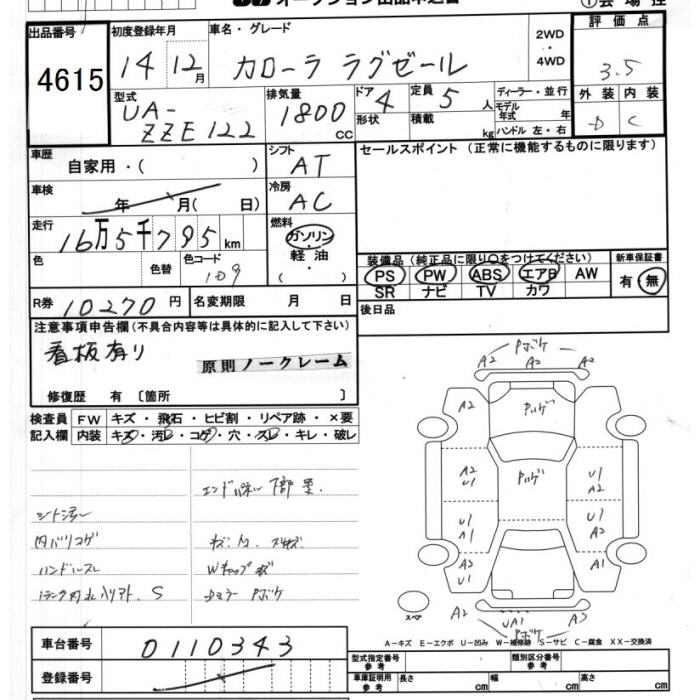 出品番号
4615
初度登録年月
14年12月
車名・グレード
カローラ ラグゼール
2WD
・
4WD
評価点
3.5
外装 内装
D C
型式
UA-
ZZE122
排気量
1800
CC
ドア
4
形状
定員
5人
積載
kg
ディーラー・並行
モデル
年式 年
ハンドル 左・右
車歴
自家用・( )
シフト
AT
セールスポイント (正常に機能するものに限ります)
車検
年 月( 日)
冷房
AC
走行
16万5千795km
燃料
ガソリン
軽油
・
( )
色
色替
色コード
1D9
装備品 (純正品に限り○をつけてください)
PS PW ABS エアB AW
SR ナビ TV カワ
新車保証書
有・無
R券
10270円
名変期限 月 日
後日品
注意事項申告欄 (不具合内容等は具体的に記入して下さい)
看板有り
原則ノークレーム
修復歴 有 〔箇所 〕
検査員
記入欄
FW キズ・飛石・ヒビ割・リペア跡・×要
内装 キズ・汚レ・コゲ・穴・スレ・キレ・破レ
内バリコゲ
ハンドルスレ
Wキャップキズ
Pボケ
A2 A2 A2
A2
Pハゲ
A2
U1
Pハゲ
U1
A2
U1
A2
U1
A2
A2
U1
A1
スペア
A2
UA1
Pボケ
A3
A−キズ E−エクボ U−凹み W−補修跡 S−サビ C−腐食 XX−交換済
車台番号
0110343
登録番号
型式指定番号
参考
類別区分番号
参考
車庫証明用
参考
長さ cm 幅 cm 高さ cm